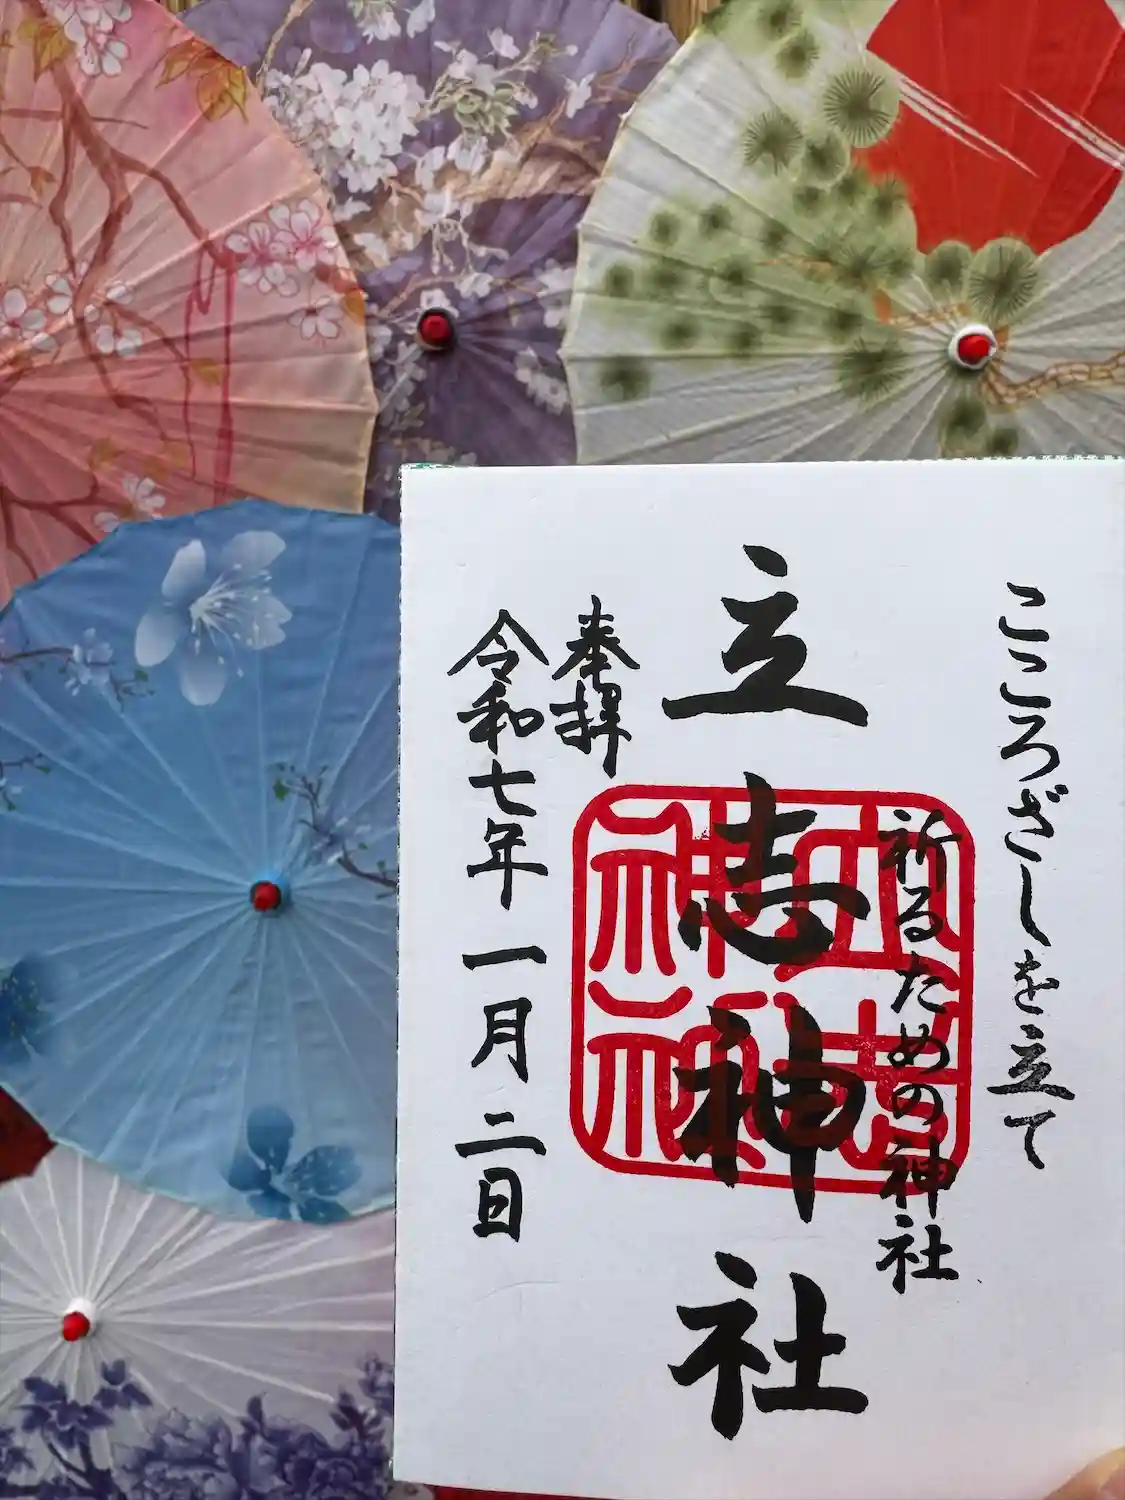 こころざしを立て
祈るための神社
立志神社
奉拝
令和七年一月二日
立志神社